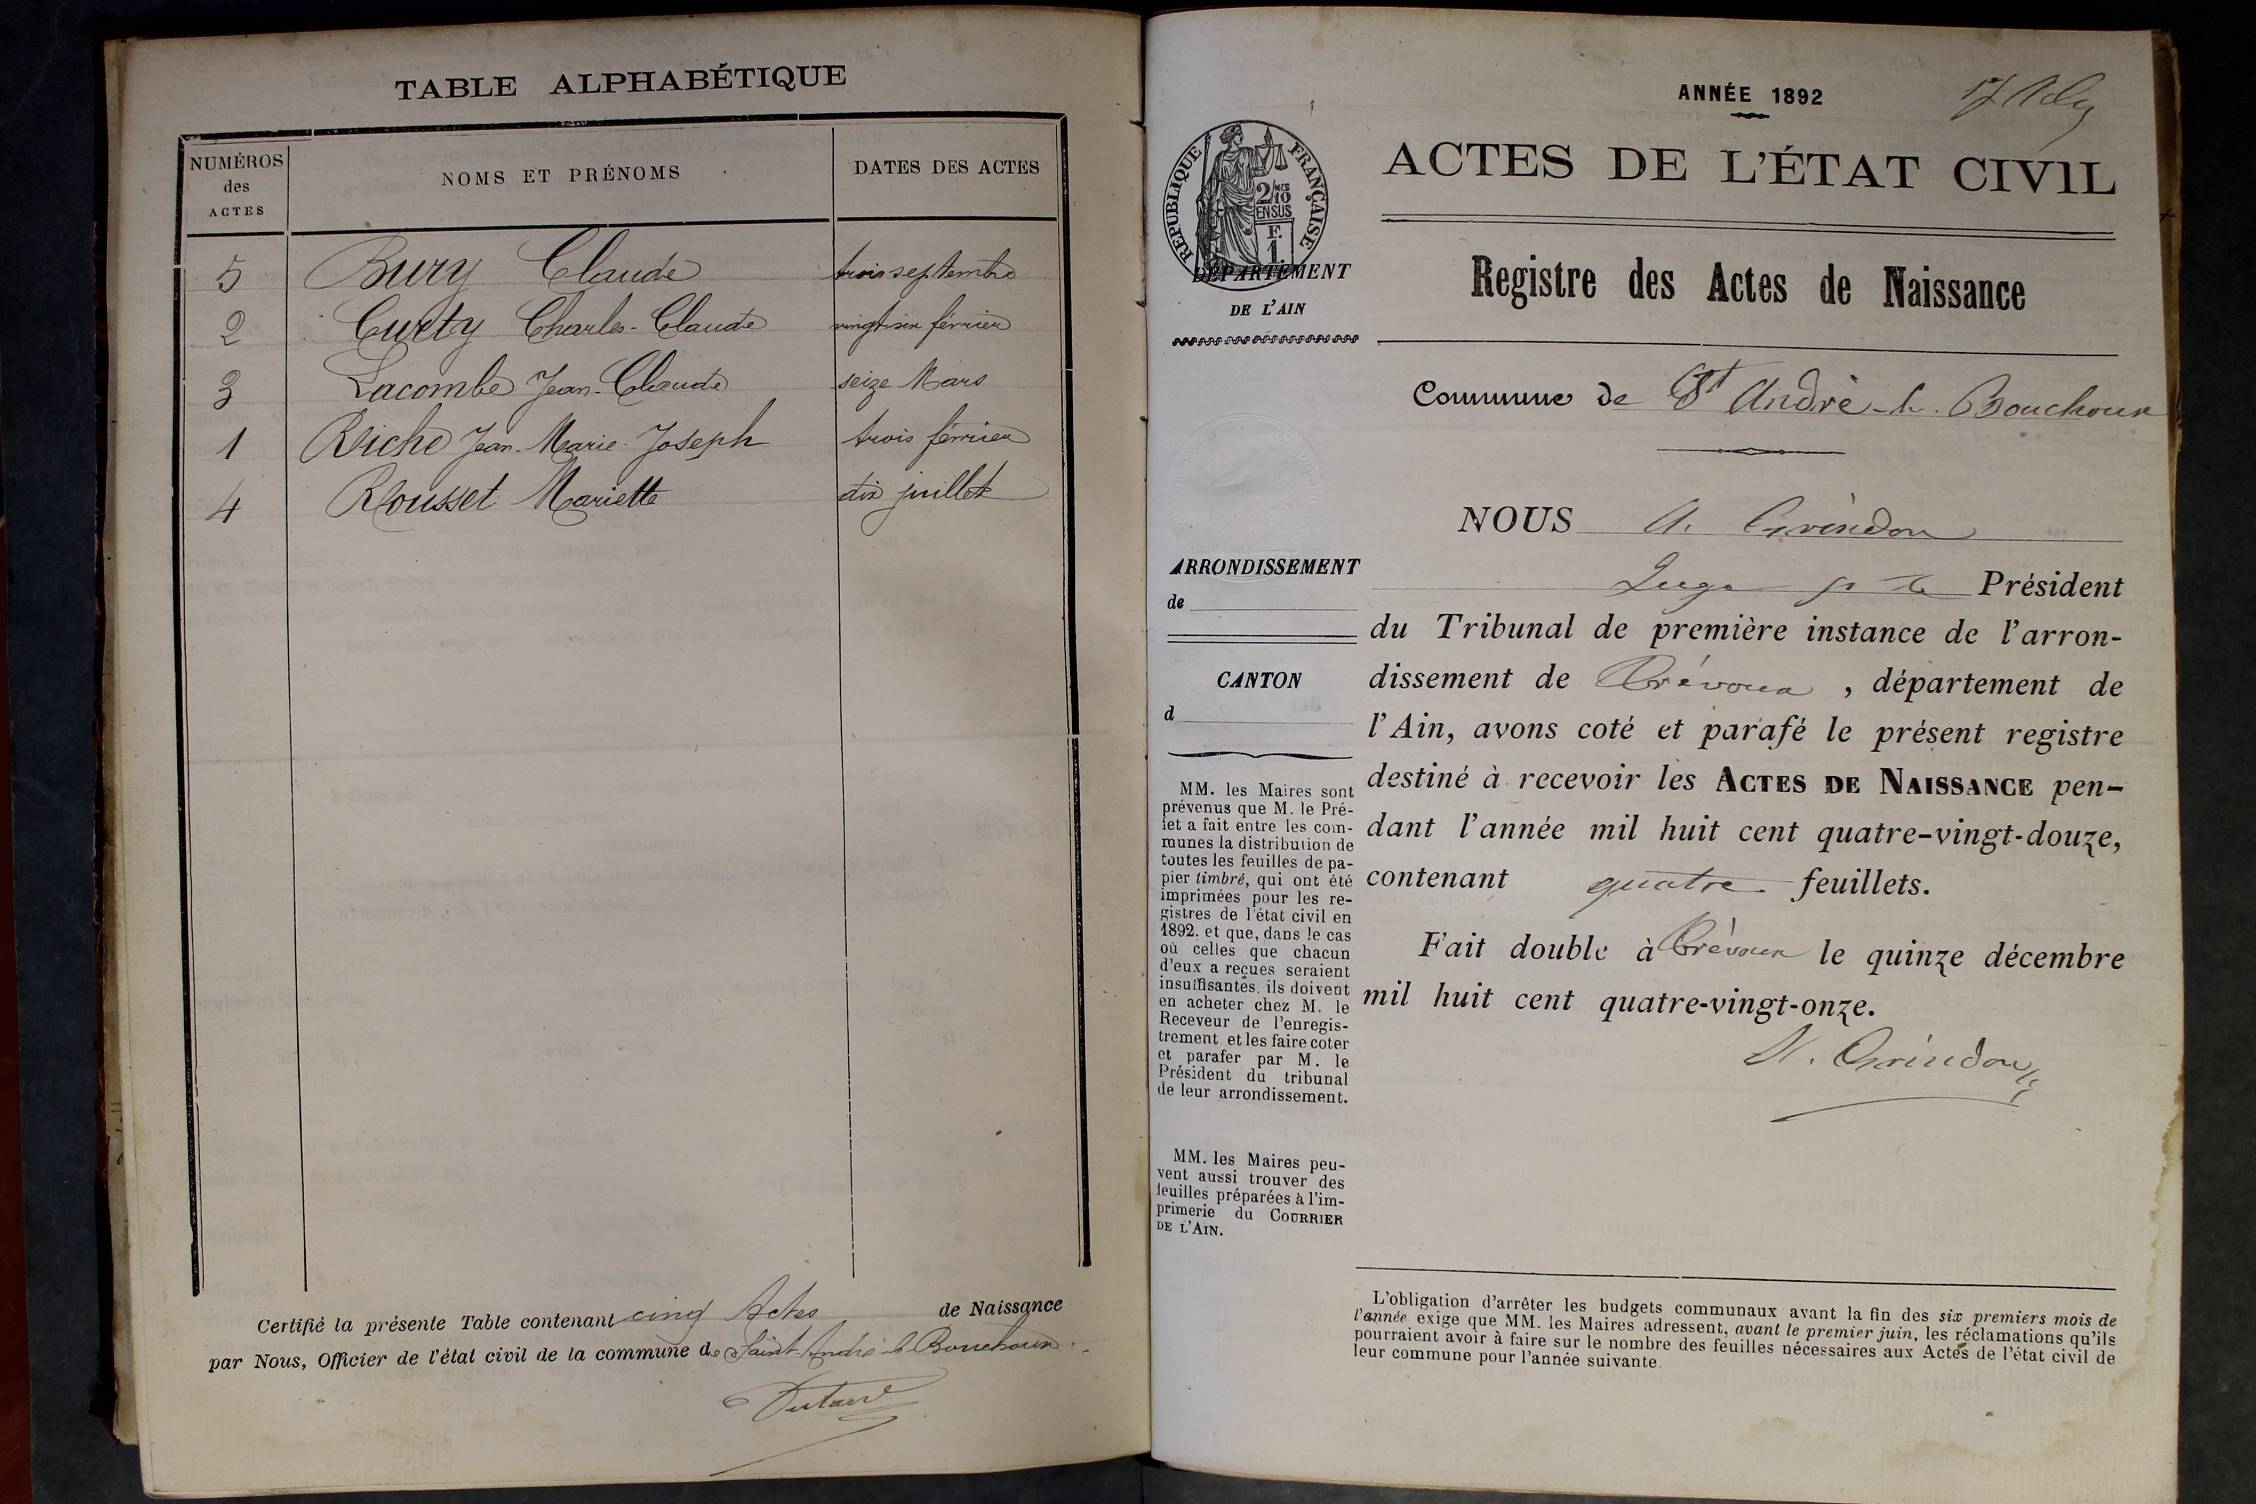 TABLE ALPHABÉTIQUE
NUMÉROS
des
ACTES
NOMS ET PRÉNOMS
DATES DES ACTES
5 Bury Claude trois septembre
2 Curty Charles-Claude vingt six février
3 Lacombe Jean-Claude seize Mars
1 Riche Jean-Marie-Joseph trois février
4 Rousset Mariette dix juillet
Certifié la présente Table contenant cinq Actes de Naissance
par Nous, Officier de l'état civil de la commune de Saint André le Bouchoux.
ANNÉE 1892
ACTES DE L'ÉTAT CIVIL
RÉPUBLIQUE FRANÇAISE
2/10 MES
EN SUS
F.
1.
DÉPARTEMENT
DE L'AIN
Registre des Actes de Naissance
Commune de St André-le-Bouchoux
NOUS A. Grindon
Juge Président
ARRONDISSEMENT
de
CANTON
d
du Tribunal de première instance de l'arron-
dissement de Trévoux, département de
l'Ain, avons coté et parafé le présent registre
destiné à recevoir les ACTES DE NAISSANCE pen-
dant l'année mil huit cent quatre-vingt-douze,
contenant quatre feuillets.
Fait double à Trévoux le quinze décembre
mil huit cent quatre-vingt-onze.
A. Grindon
MM. les Maires sont
prévenus que M. le Pré-
fet a fait entre les com-
munes la distribution de
toutes les feuilles de pa-
pier timbré, qui ont été
imprimées pour les re-
gistres de l'état civil en
1892. et que, dans le cas
où celles que chacun
d'eux a reçues seraient
insuffisantes, ils doivent
en acheter chez M. le
Receveur de l'enregis-
trement et les faire coter
et parafer par M. le
Président du tribunal
de leur arrondissement.
MM. les Maires peu-
vent aussi trouver des
feuilles préparées à l'im-
primerie du COURRIER
DE L'AIN.
L'obligation d'arrêter les budgets communaux avant la fin des six premiers mois de
l'année exige que MM. les Maires adressent, avant le premier juin, les réclamations qu'ils
pourraient avoir à faire sur le nombre des feuilles nécessaires aux Actes de l'état civil de
leur commune pour l'année suivante.